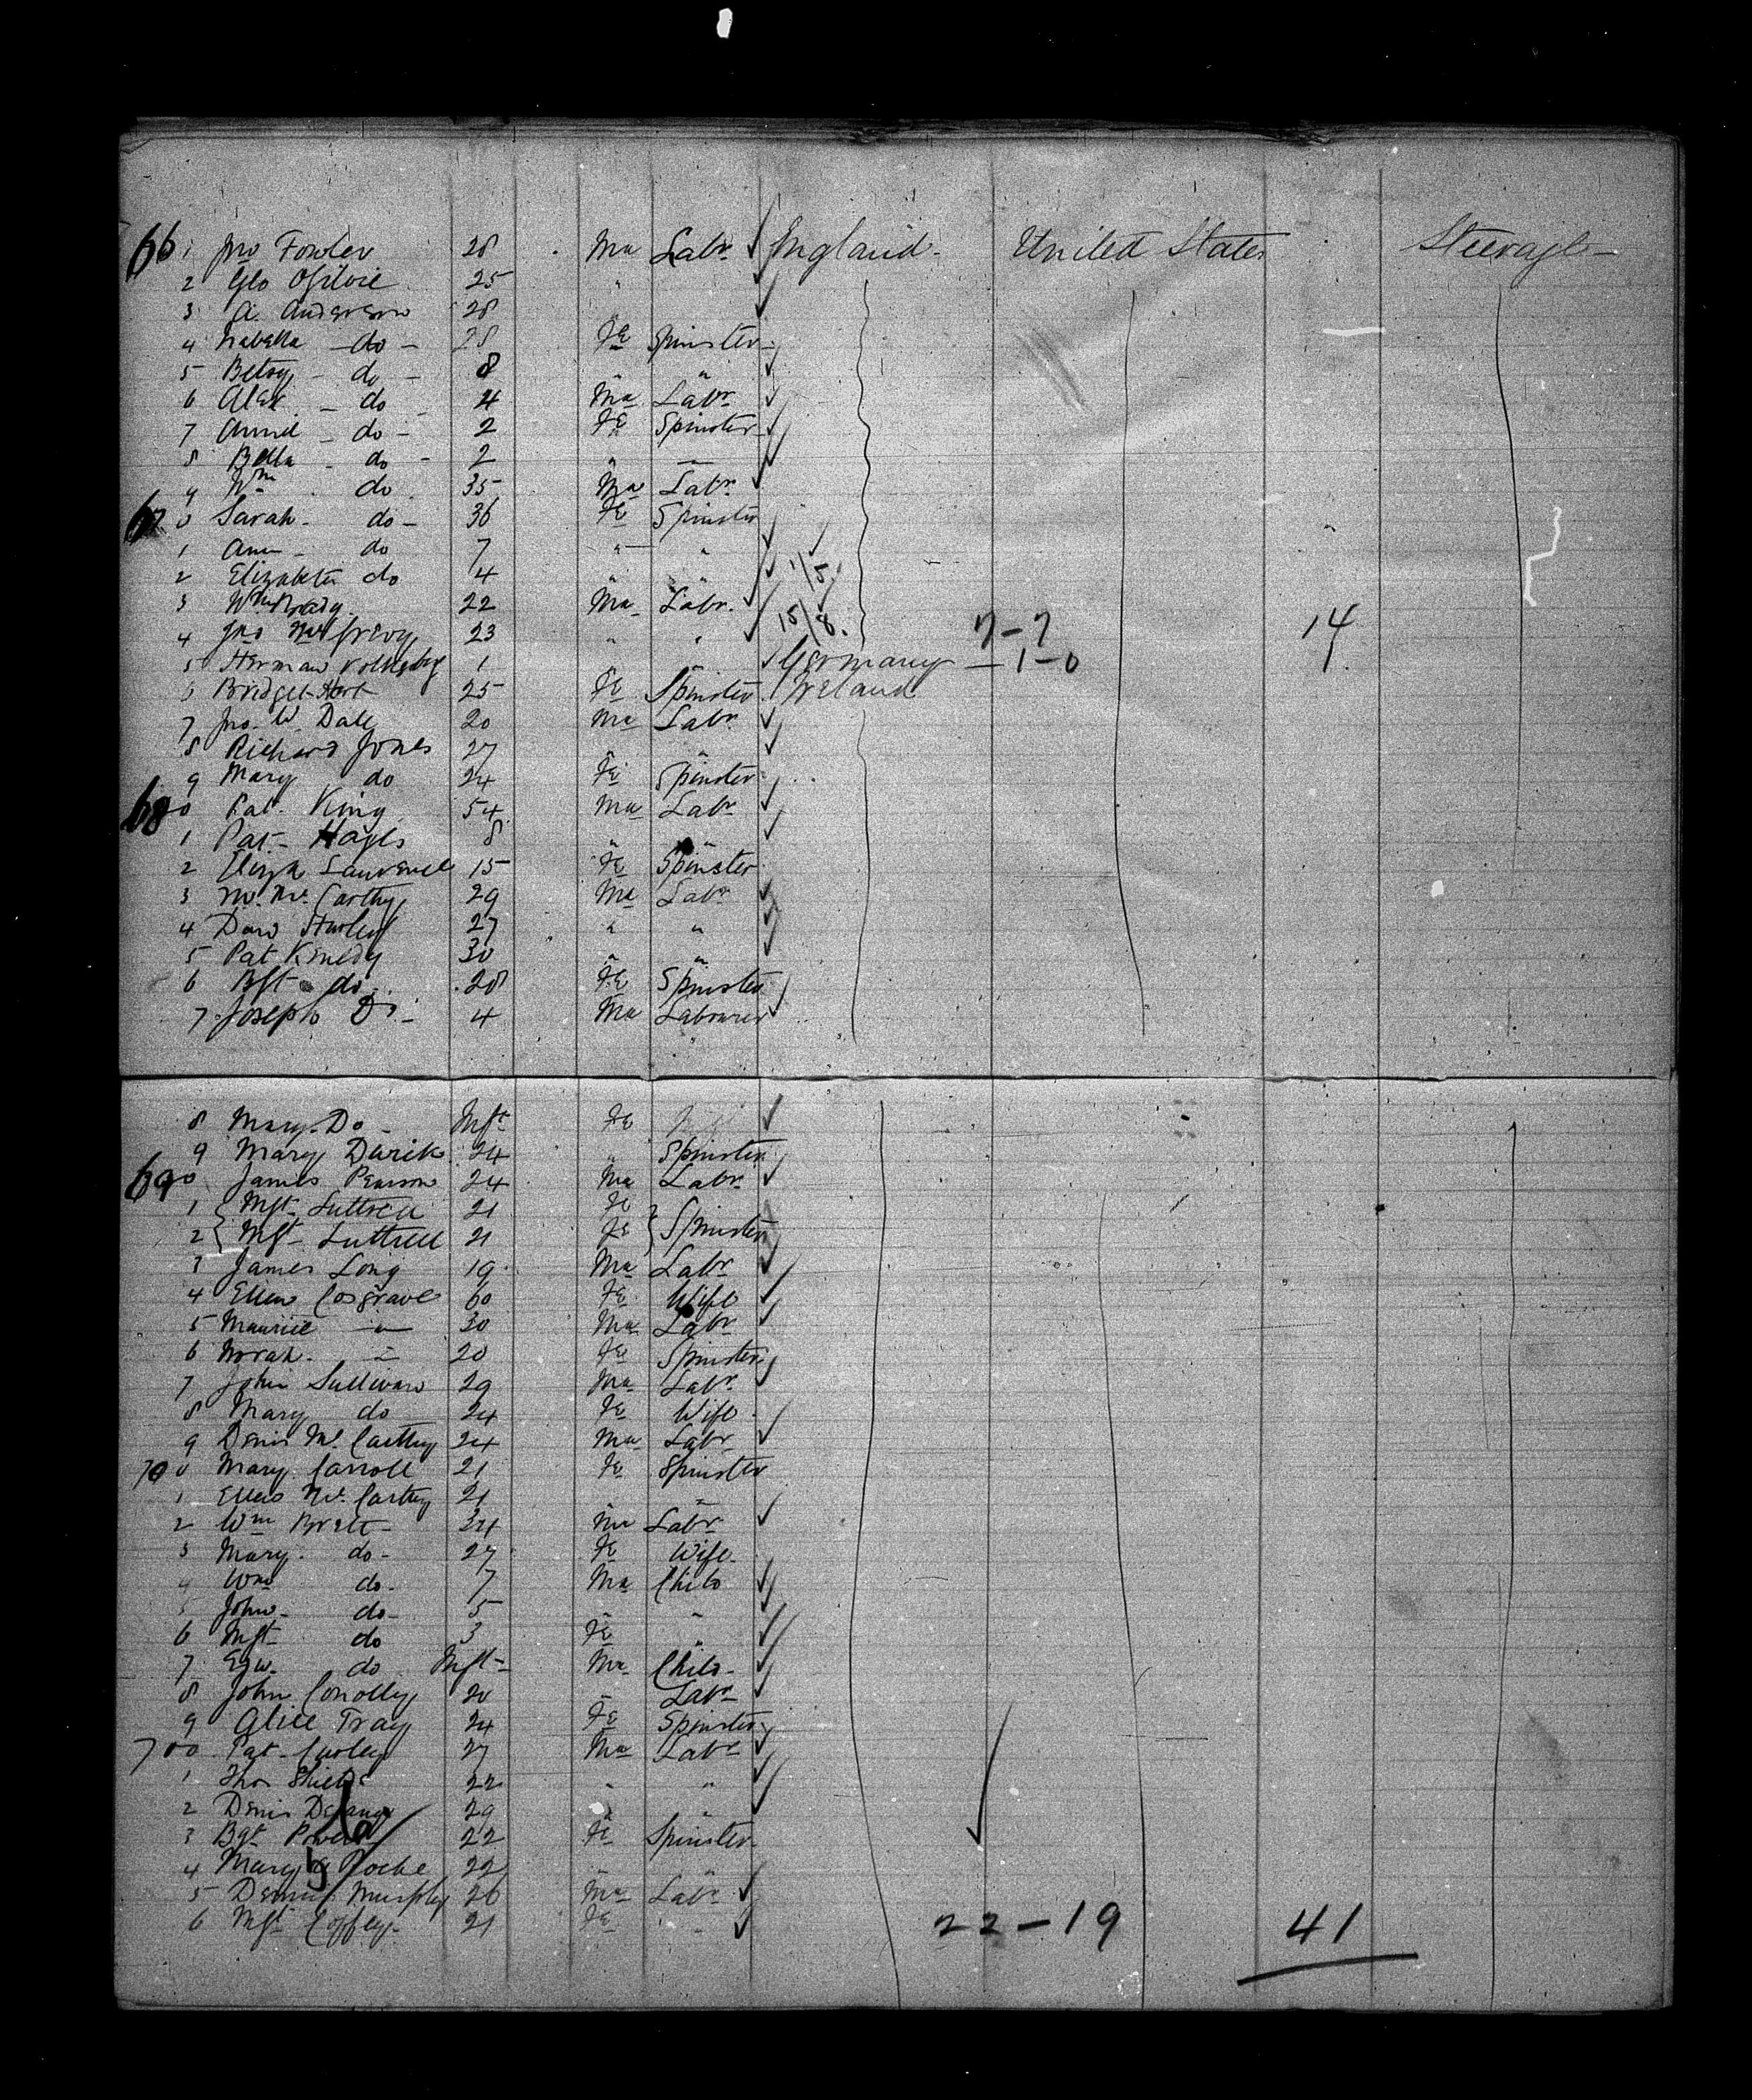 66 1 Jno Fowler 28 Ma Labr ✓ England - United States Steerage -
2 Geo Ogilvie 25 " ✓
3 A. Anderson 28 " ✓
4 Isabella - do - 28 Fe Spinster -
5 Betsy - do - 8 " " ✓
6 Alex - do - 4 Ma Labr ✓
7 Annie - do - 2 Fe Spinster - ✓
8 Bella - do - 2 " " ✓
9 Wm do 35 Ma Labr ✓
67 0 Sarah - do - 36 Fe Spinster
1 Ann - do 7 " " ✓
2 Elizabeth do 4 " " ✓ 1/5
3 Wm Brady 22 Ma Labr. ✓ 15/8.
4 Jno 23 " " ✓ 7 - 7 14
5 Herman 1 " " ✓ Germany - 1 - 0 1
6 Bridget Hart 25 Fe Spinster Ireland
7 Jno. W. Dale 20 Ma Labr ✓
8 Richard Jones 27 " " ✓
9 Mary do 24 Fe Spinster
68 0 Pat. King 54 Ma Labr ✓
1 Pat - Hayes 8 " " ✓
2 Eliza Laurence 15 Fe Spinster
3 Mc Carthy 29 Ma Labr ✓
4 Hurley 27 " " ✓
5 Pat Kenedy 30 " " ✓
6 do 28 Fe Spinster
7 Joseph Do - 4 Ma Labourer ✓
8 Mary - Do - Inft Fe ✓
9 Mary 24 " Spinster
69 0 James Pearson 24 Ma Labr ✓
1 { Mgt Luttrell 21 Fe
2 { Mgt Luttrell 21 Fe } Spinster
3 James Long 19 Ma Labr ✓
4 Ellen Cosgrave 60 Fe Wife ✓
5 Maurice - " - 30 Ma Labr ✓
6 Norah - " 20 Fe Spinster
7 John Sullivan 29 Ma Labr ✓
8 Mary do 24 Fe Wife
9 Denis Mc Carthy 24 Ma Labr ✓
70 0 Mary Carroll 21 Fe Spinster
1 Ellen Mc Carthy 21 " "
2 Wm Brett - 34 Ma Labr ✓
3 Mary do - 27 Fe Wife -
4 Wm do - 7 Ma Child ✓
5 John - do - 5 " " ✓
6 Mgt do 3 Fe " ✓
7 Edw. do Inft - Ma Child - ✓
8 John Conolly 20 " Labr ✓
9 Alice Tracy 24 Fe Spinster ✓
700 Pat - Curley 27 Ma Labr ✓
1 Thos Shields 22 " " ✓
2 Denis 29 " " ✓
3 Bgt Power 22 Fe Spinster -
4 Mary Roche 22 " "
5 Dennis Murphy 26 Ma Labr ✓
6 Mgt Coffey - 21 Fe " ✓ 22 - 19 41